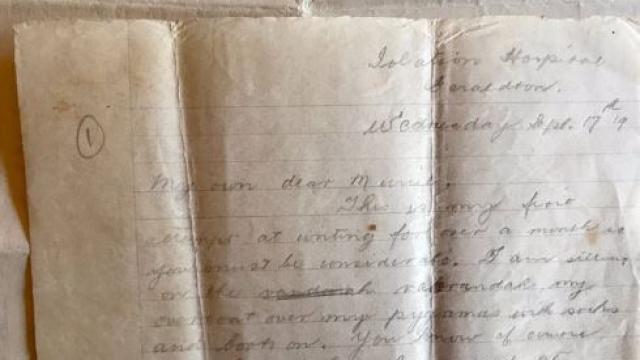 Isolation Hospital
Geraldton.
Wednesday Sept. 17th 19
1
My own dear Muriel,
This is my first
attempt at writing for over a month so
you must be considerate. I am sitting
on the verandah my
overcoat over my pyjamas with socks
and boots on. You know of course